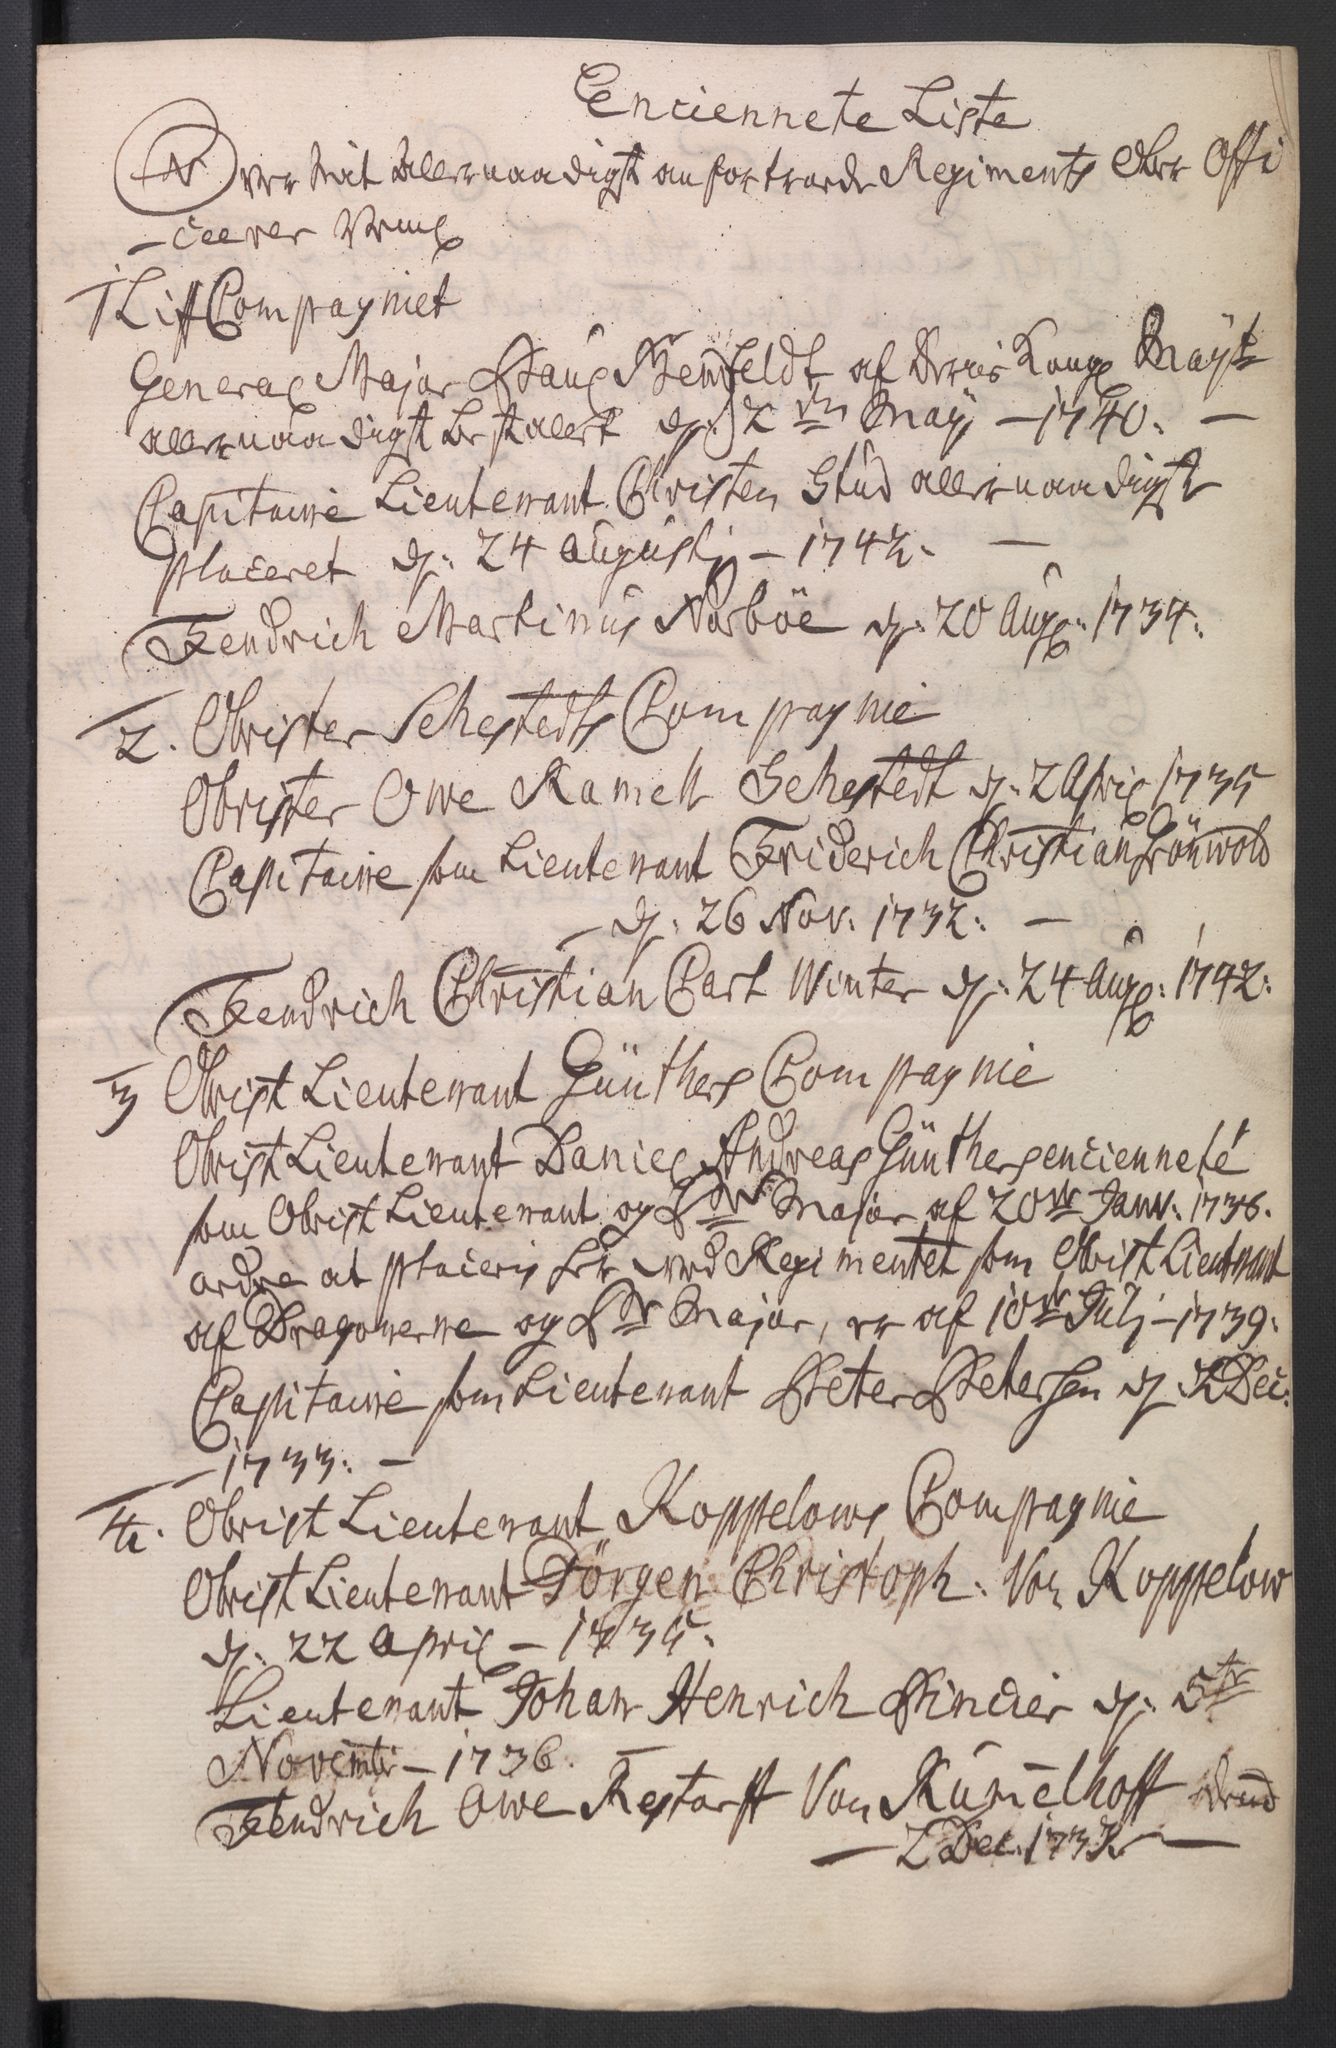 Enciennete Liste
N
over Mit Allernaadigst anfortroede Regiments Ober Offi
-ceerer Vrml
1 Liff Compagniet
General Major Hauf Kemfeldt af Deris Kongl Mayst
allernaadigst bestallet d: 2den Maÿ - 1740. -
Capitaine Lieutenant Christen Stud allernaadigst
placeret d: 24 Augustij - 1742. -
Fendrich Martinus Norböe d: 20 Aug: 1734.
2. Obrister Sehestedts Compagnie
Obrister Owe Ramell Sehestedt d: 2 April 1735
Capitaine som Lieutenant Friderich Christian Grönwold
- d: 26 Nov. 1732. -
Fendrich Christian Carl Winter d: 24 Aug: 1742.
3 Obrist Lieutenant Günthers Compagnie
Obrist Lieutenant Daniel Andreas Günthers encienneté
som Obrist Lieutenant og Pr Major af 20de Janv. 1736.
ordre at placeris her ved Regimentet som Obrist Lieutenant
af Dragonerne og Pr Major, er af 10de Julj - 1739.
Capitaine som Lieutenant Peter Petersen d 2 Dec:
- 1733. -
4. Obrist Lieutenant Koppelows Compagnie
Obrist Lieutenant Jörgen Christoph: Von Koppelow
d: 22 April - 1735.
Lieutenant Johan Henrich Pincier d: 5te
Novembr - 1736.
Fendrich Owe Restorff Von Rumelhoff dend
- 2 Dec. 1733 -